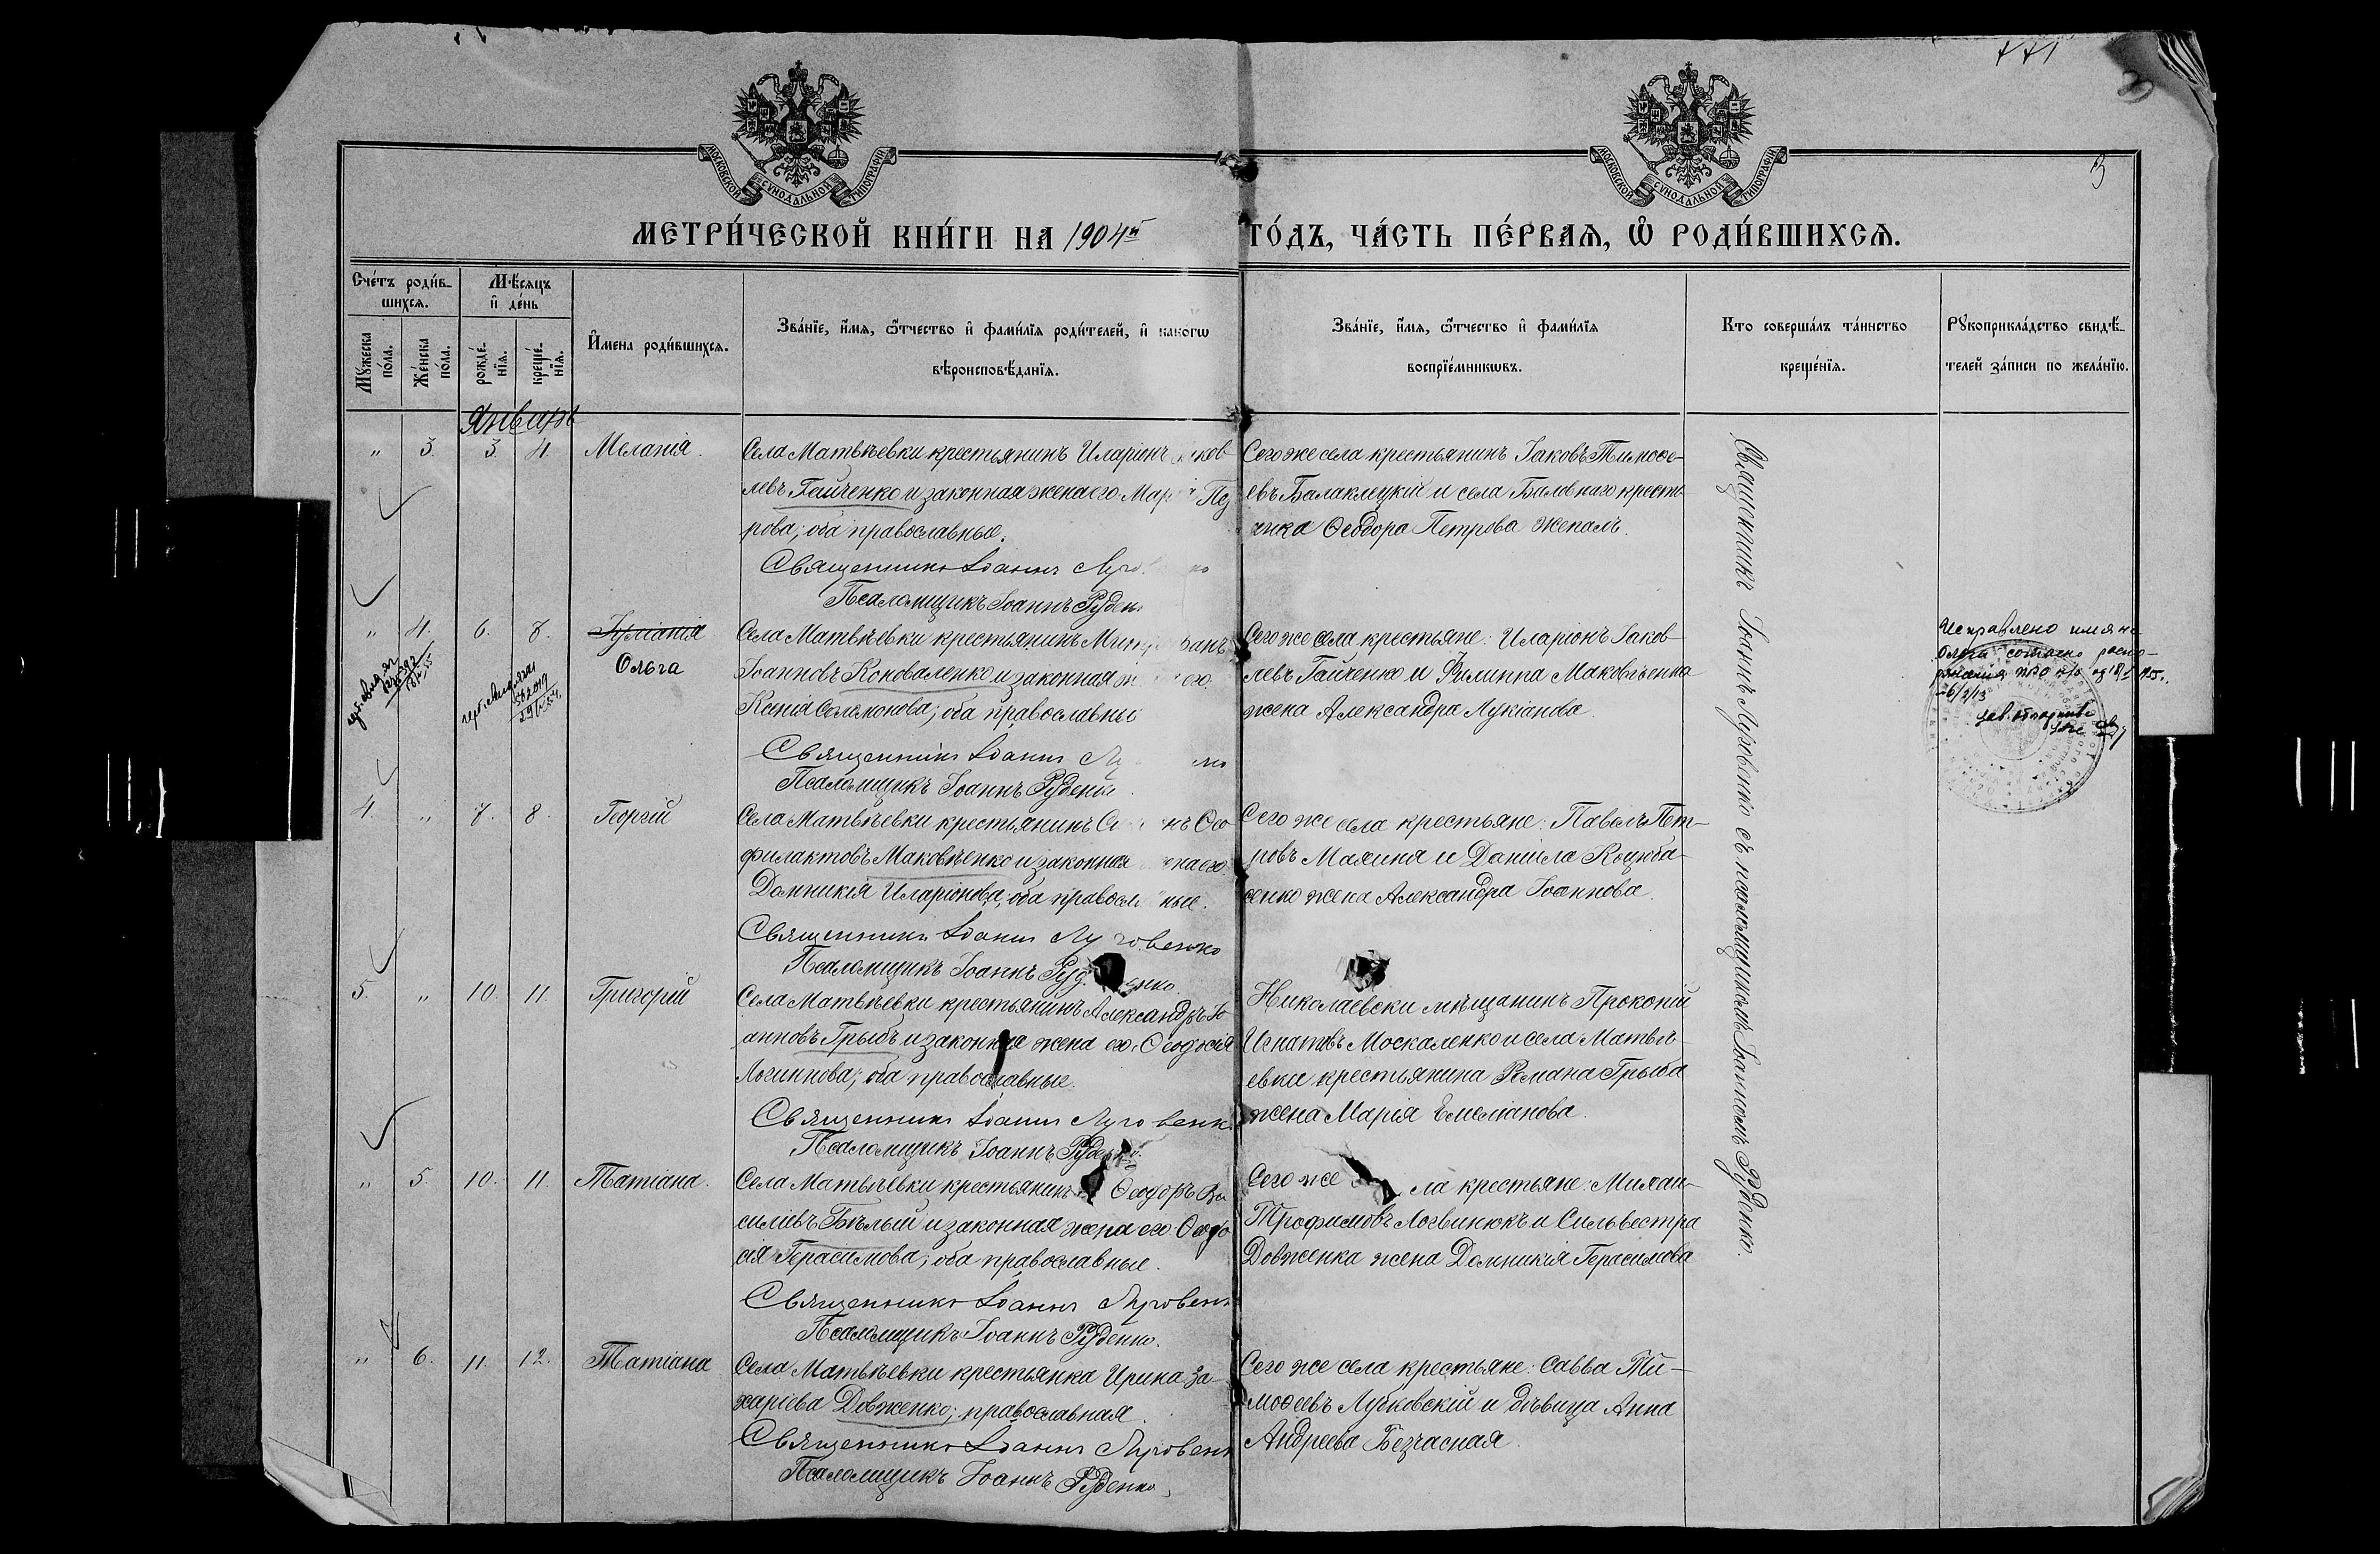 441
3
МОСКОВСКОЙ СУНОДАЛЬНОЙ ТИПОГРАФІИ
МОСКОВСКОЙ СУНОДАЛЬНОЙ ТИПОГРАФІИ
МЕТРИ́ЧЕСКОЙ КНИ́ГИ НА 1904й ГО́ДЪ, ЧА́СТЬ ПЕ́РВАѦ, Ѡ РОДИ́ВШИХСѦ.
Сче́тъ роди́в-
шихсѧ.
Мѣ́сѧцъ
и҆ де́нь
Мꙋ́жеска по́ла.
Же́нска по́ла.
рожде́-
нїѧ.
креще́-
нїѧ.
И҆мена роди́вшихсѧ.
Зва́нїе, и҆́мѧ, ѻ҆́тчество и҆ фами́лїѧ роди́телей, и҆ какогѡ
вѣроисповѣ́данїѧ.
Зва́нїе, и҆́мѧ, ѻ҆́тчество и҆ фами́лїѧ
воспрїе́мникѡвъ.
Кто соверша́лъ та́инство
креще́нїѧ.
Рꙋкоприкла́дство свидѣ́-
телей за́писи по жела́нїю.
Январь
" 3. 3. 4. Меланія.
Села Матвѣевки крестьянинъ Иларіонъ
левъ Гайченко и законная жена его Пет
рова; оба православные.
Священникъ Іоаннъ
Псаломщикъ Іоаннъ
Сего же села крестьянинъ Іаковъ Тимоѳе-
евъ Балаклецкій и села
Ѳеодора Петрова
" 4. 6. 8. Іуліанія
Ольга
Села Матвѣевки крестьянинъ
Іоанновъ Коноваленко и законная его
Ксенія Соломонова; оба православные
Священникъ Іоаннъ
Псаломщикъ Іоаннъ Руденко
Сего же села крестьяне: Иларіонъ Іаков-
левъ Гайченко и Филиппа Маковѣенка
жена Александра Лукіанова.
Исправлено имя на
Ольга согласно распо-
ряжения
4. " 7. 8. Георгій
Села Матвѣевки крестьянинъ Ѳео
филактовъ Маковѣенко и законная жена его
Домникія Иларіонова; оба православные.
Священникъ Іоаннъ Луговенко
Псаломщикъ Іоаннъ Руденко.
Сего же села крестьяне: Павелъ Пет-
ровъ Малина и Даніила
жена Александра Іоаннова.
5. " 10. 11. Григорій
Села Матвѣевки крестьянинъ Александръ Іо
анновъ Грыбъ и законная жена его Ѳеодосія
Логиннова; оба православные.
Священникъ Іоаннъ Луговенко
Псаломщикъ Іоаннъ Руденко
Николаевски мѣщанинъ Прокопій
Игнатовъ Москаленко и села Матвѣ-
евки крестьянина Романа Грыба
жена Марія Емеліанова.
" 5. 10. 11. Татіана.
Села Матвѣевки крестьянинъ Ѳеодоръ Ва
силіевъ Бѣлый и законная жена его Ѳеодо
сія Герасимова; оба православные.
Священникъ Іоаннъ Луговенк
Псаломщикъ Іоаннъ Руденко.
Сего же ла крестьяне: Михаи-
Трофимовъ Логвинюкъ и Сильвестра
Довженка жена Домникія Герасимова
" 6. 11. 12. Татіана
Села Матвѣевки крестьянка Ирина За-
харіева Довженко; православная.
Священникъ Іоаннъ Луговенк
Псаломщикъ Іоаннъ Руденко.
Сего же села крестьяне: Савва Ти-
моѳеевъ Лубковскій и дѣвица Анна
Андреева Безчасная.
Священникъ Іоаннъ Луговенко съ псаломщикомъ Іоанномъ Руденко.